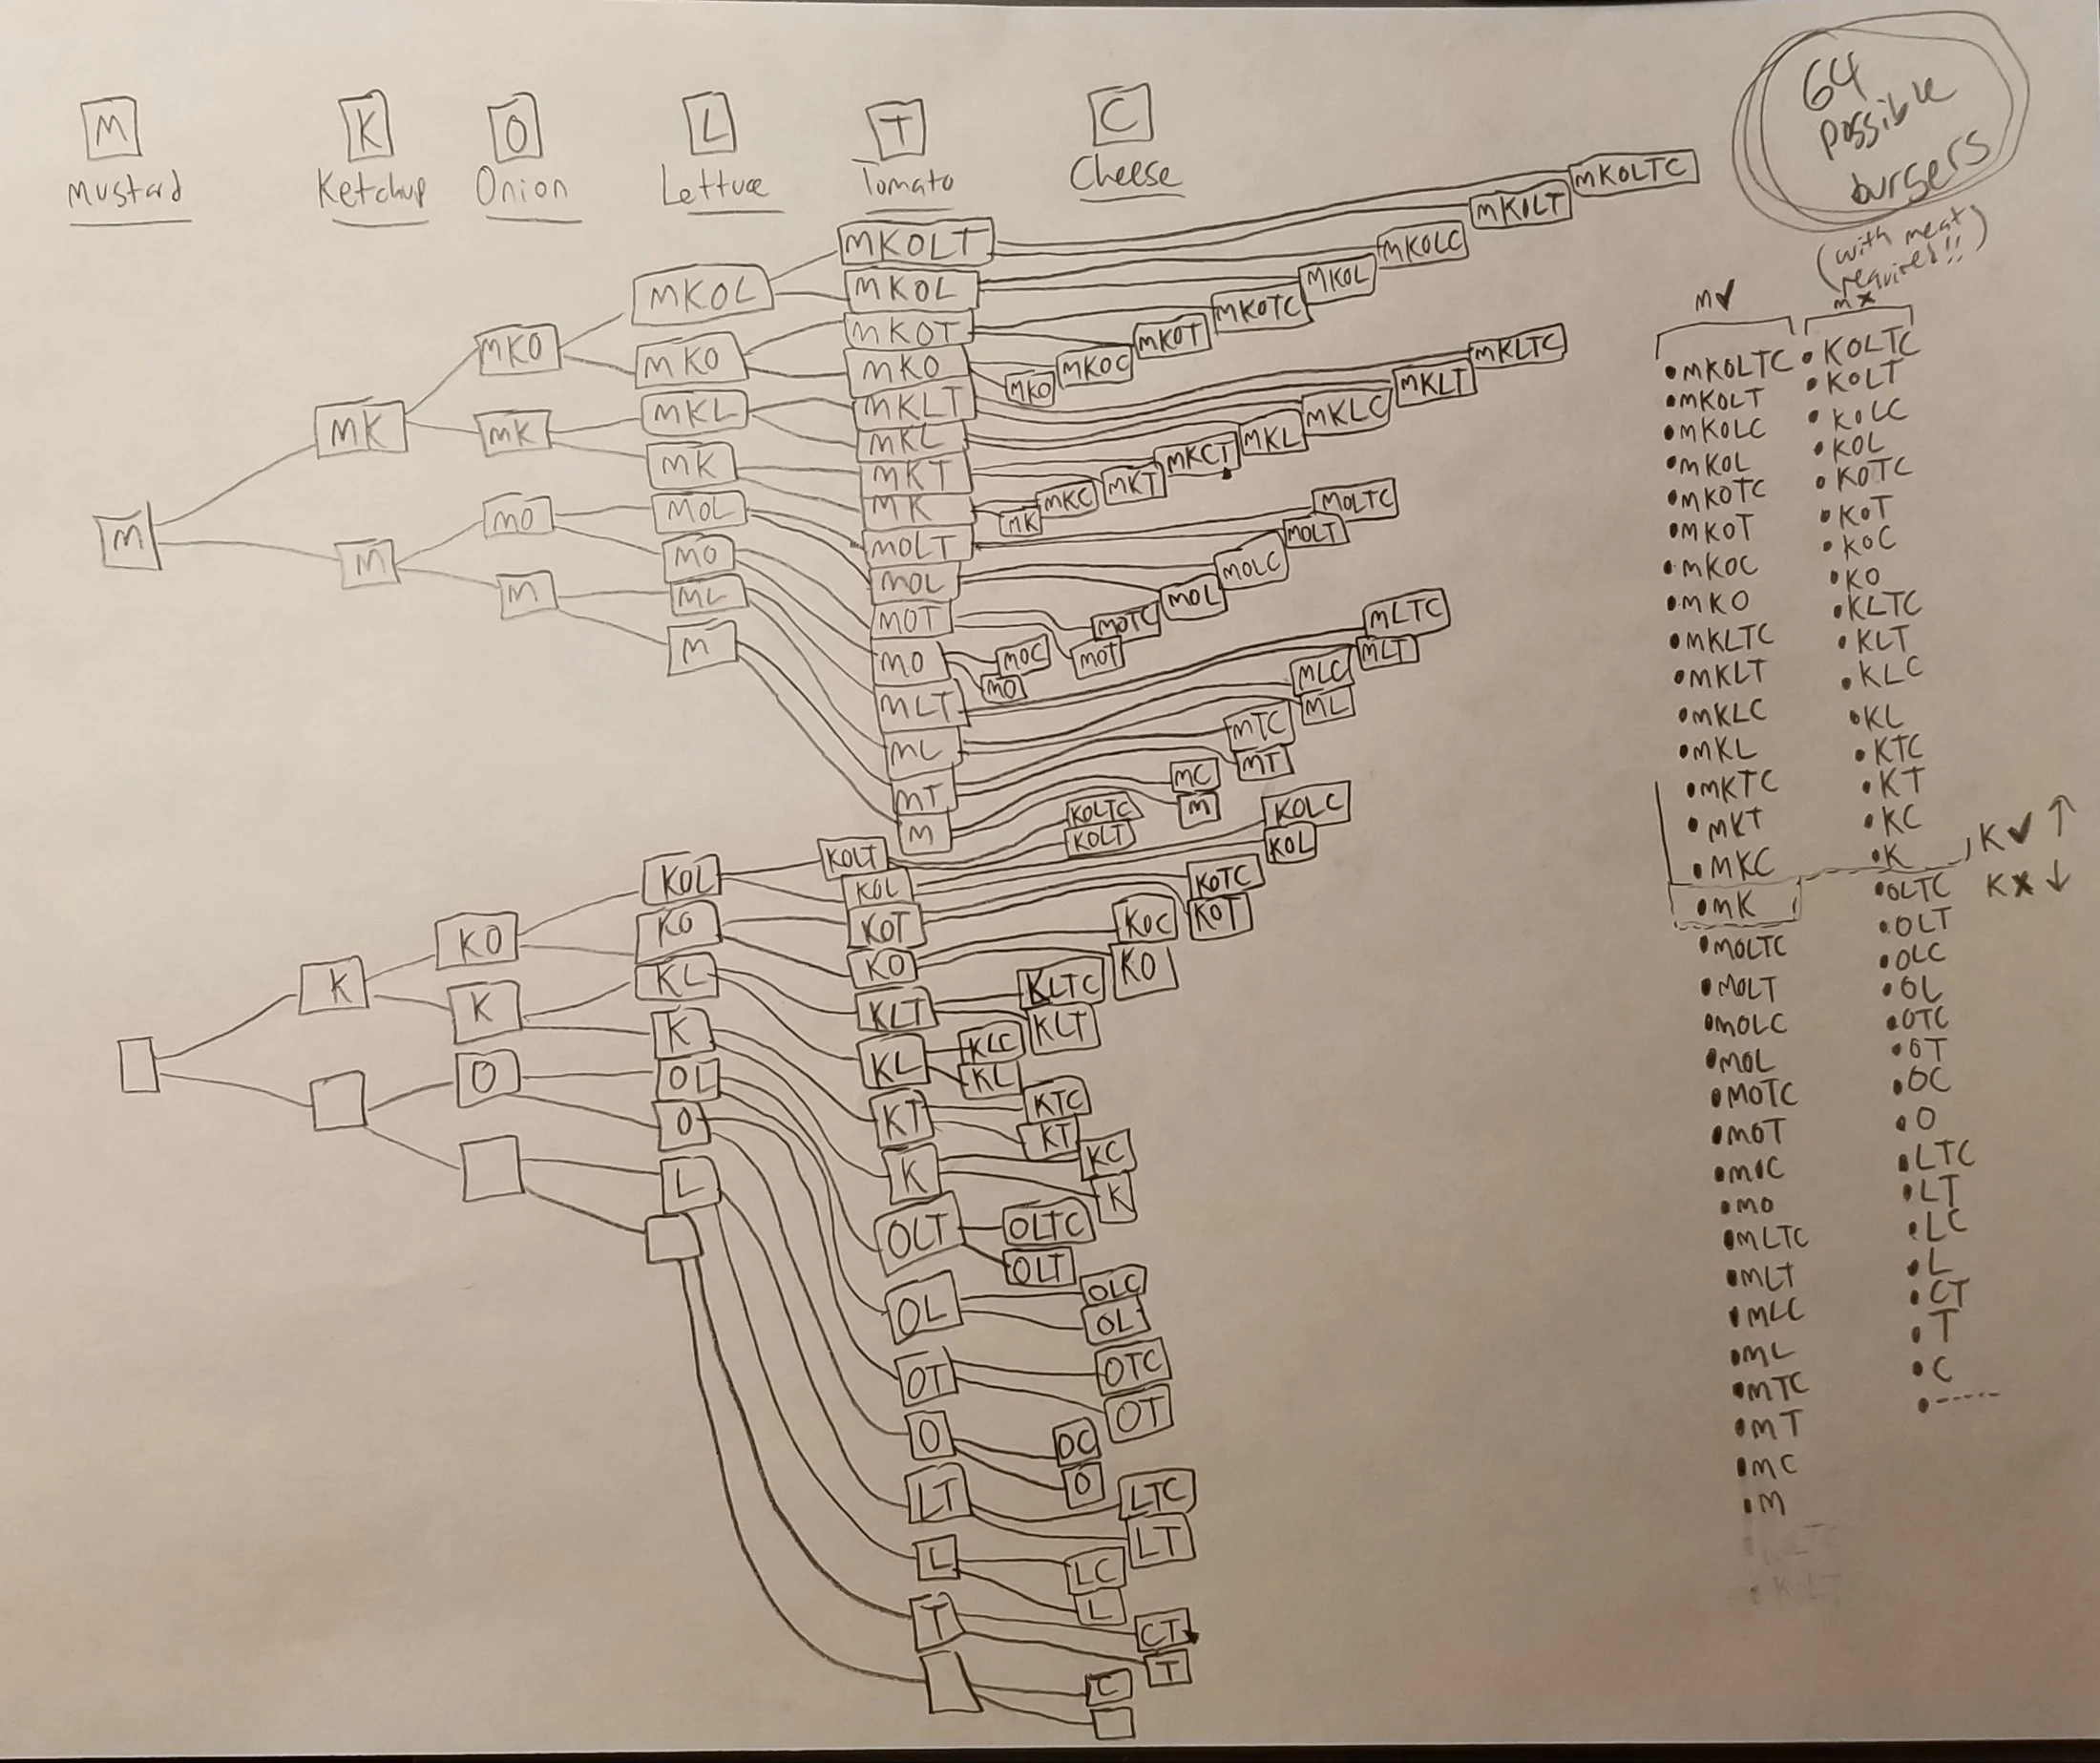 M
K
O
L
T
C
Mustard
Ketchup
Onion
Lettuce
Tomato
Cheese
64
possible
burgers
(with meat
required!!)
M
MK
M
MKO
MK
MO
M
MKOL
MKO
MKL
MK
MOL
MO
ML
M
MKOLT
MKOL
MKOT
MKO
MKLT
MKL
MKT
MK
MOLT
MOL
MOT
MO
MLT
ML
MT
M
MKOLTC
MKOLT
MKOLC
MKOL
MKOTC
MKOT
MKOC
MKO
MKLTC
MKLT
MKLC
MKL
MKCT
MKT
MKC
MK
MOLTC
MOLT
MOLC
MOL
MOTC
MOT
MOC
MO
MLTC
MLT
MLC
ML
MTC
MT
MC
M
K
KO
K
O
KOL
KO
KL
K
OL
O
L
KOLT
KOL
KOT
KO
KLT
KL
KT
K
OLT
OL
OT
O
LT
L
T
KOLTC
KOLT
KOLC
KOL
KOTC
KOT
KOC
KO
KLTC
KLT
KLC
KL
KTC
KT
KC
K
OLTC
OLT
OLC
OL
OTC
OT
OC
O
LTC
LT
LC
L
CT
T
C
M✓
•MKOLTC
•MKOLT
•MKOLC
•MKOL
•MKOTC
•MKOT
•MKOC
•MKO
•MKLTC
•MKLT
•MKLC
•MKL
•MKTC
•MKT
•MKC
•MK
•MOLTC
•MOLT
•MOLC
•MOL
•MOTC
•MOT
•MOC
•MO
•MLTC
•MLT
•MLC
•ML
•MTC
•MT
•MC
•M
M×
•KOLTC
•KOLT
•KOLC
•KOL
•KOTC
•KOT
•KOC
•KO
•KLTC
•KLT
•KLC
•KL
•KTC
•KT
•KC
•K
•OLTC
•OLT
•OLC
•OL
•OTC
•OT
•OC
•O
•LTC
•LT
•LC
•L
•CT
•T
•C
•-----
K✓↑
K×↓